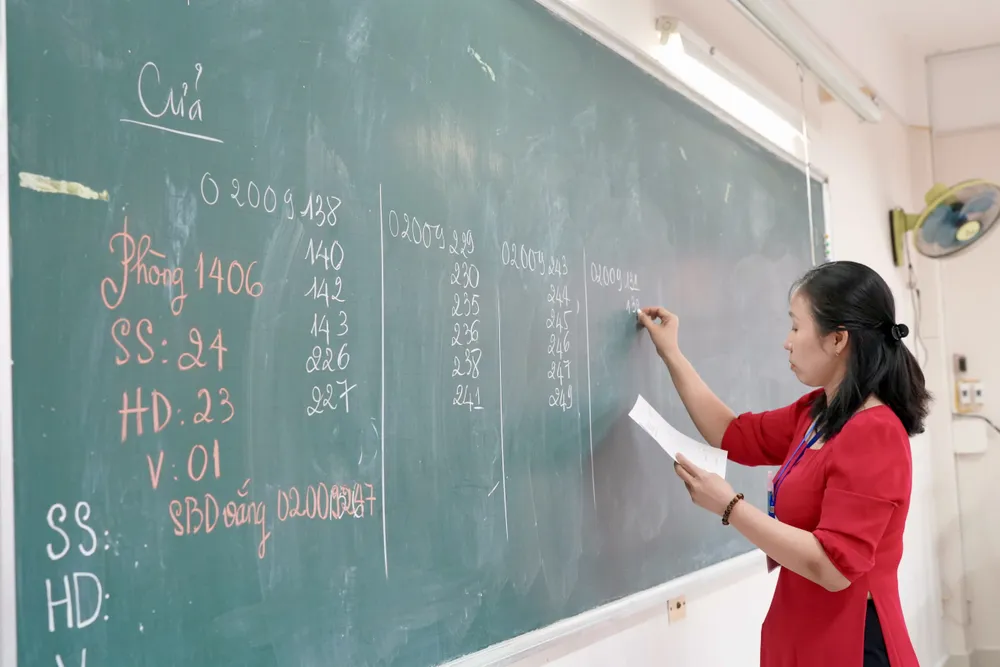 Cuả
02009138
140
142
143
226
227
02009229
230
235
236
238
241
02009243
244
245
246
247
249
02009131
Phòng 1406
SS: 24
HD: 23
V: 01
SBD vắng
SS:
HD:
V